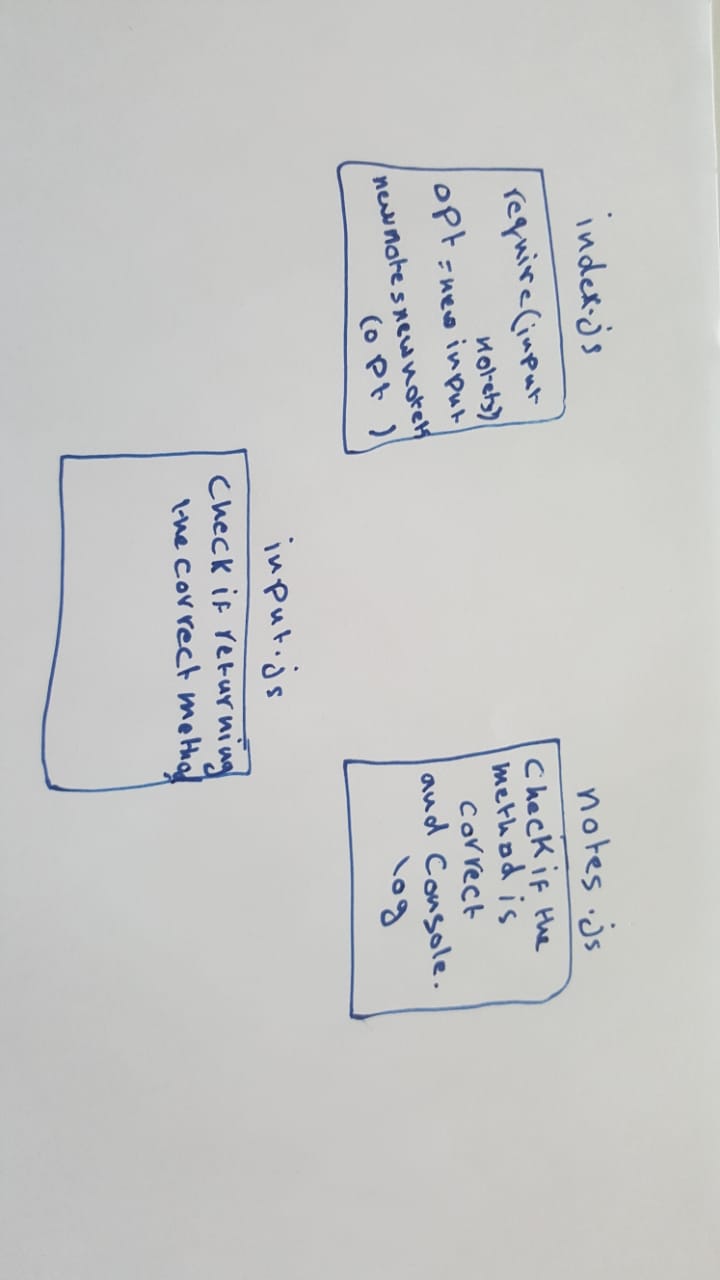 index.js
require(input
notes)
opt = new input
newnotes new notes
(opt )
notes .js
Check if the
method is
correct
and Console.
log
input.js
Check if returning
the correct method